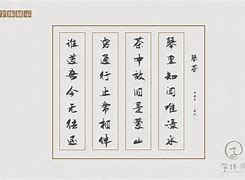 字体展示
琴茶
琴里知闻唯渌水
茶中故旧是蒙山
穷通行止常相伴
谁道吾今无往还